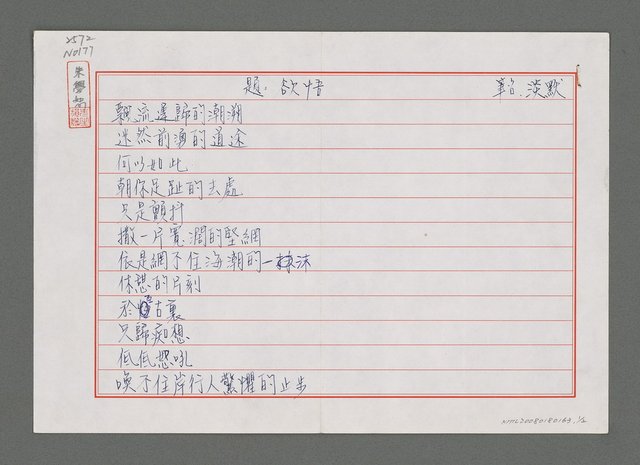 2572
NO177
朱學恕
題：欲悟
筆名：淡默
飄流遷歸的潮溯
迷然前湧的道途
何以如此
朝你足趾的去處
只是顫抖
撒一片寬濶的堅網
依是網不住海潮的一抹沫
休憩的片刻
於古裏
只歸痴想
低低怒吼
喚不住岸行人驚懼的止步
NMTL20080180163, 1/2